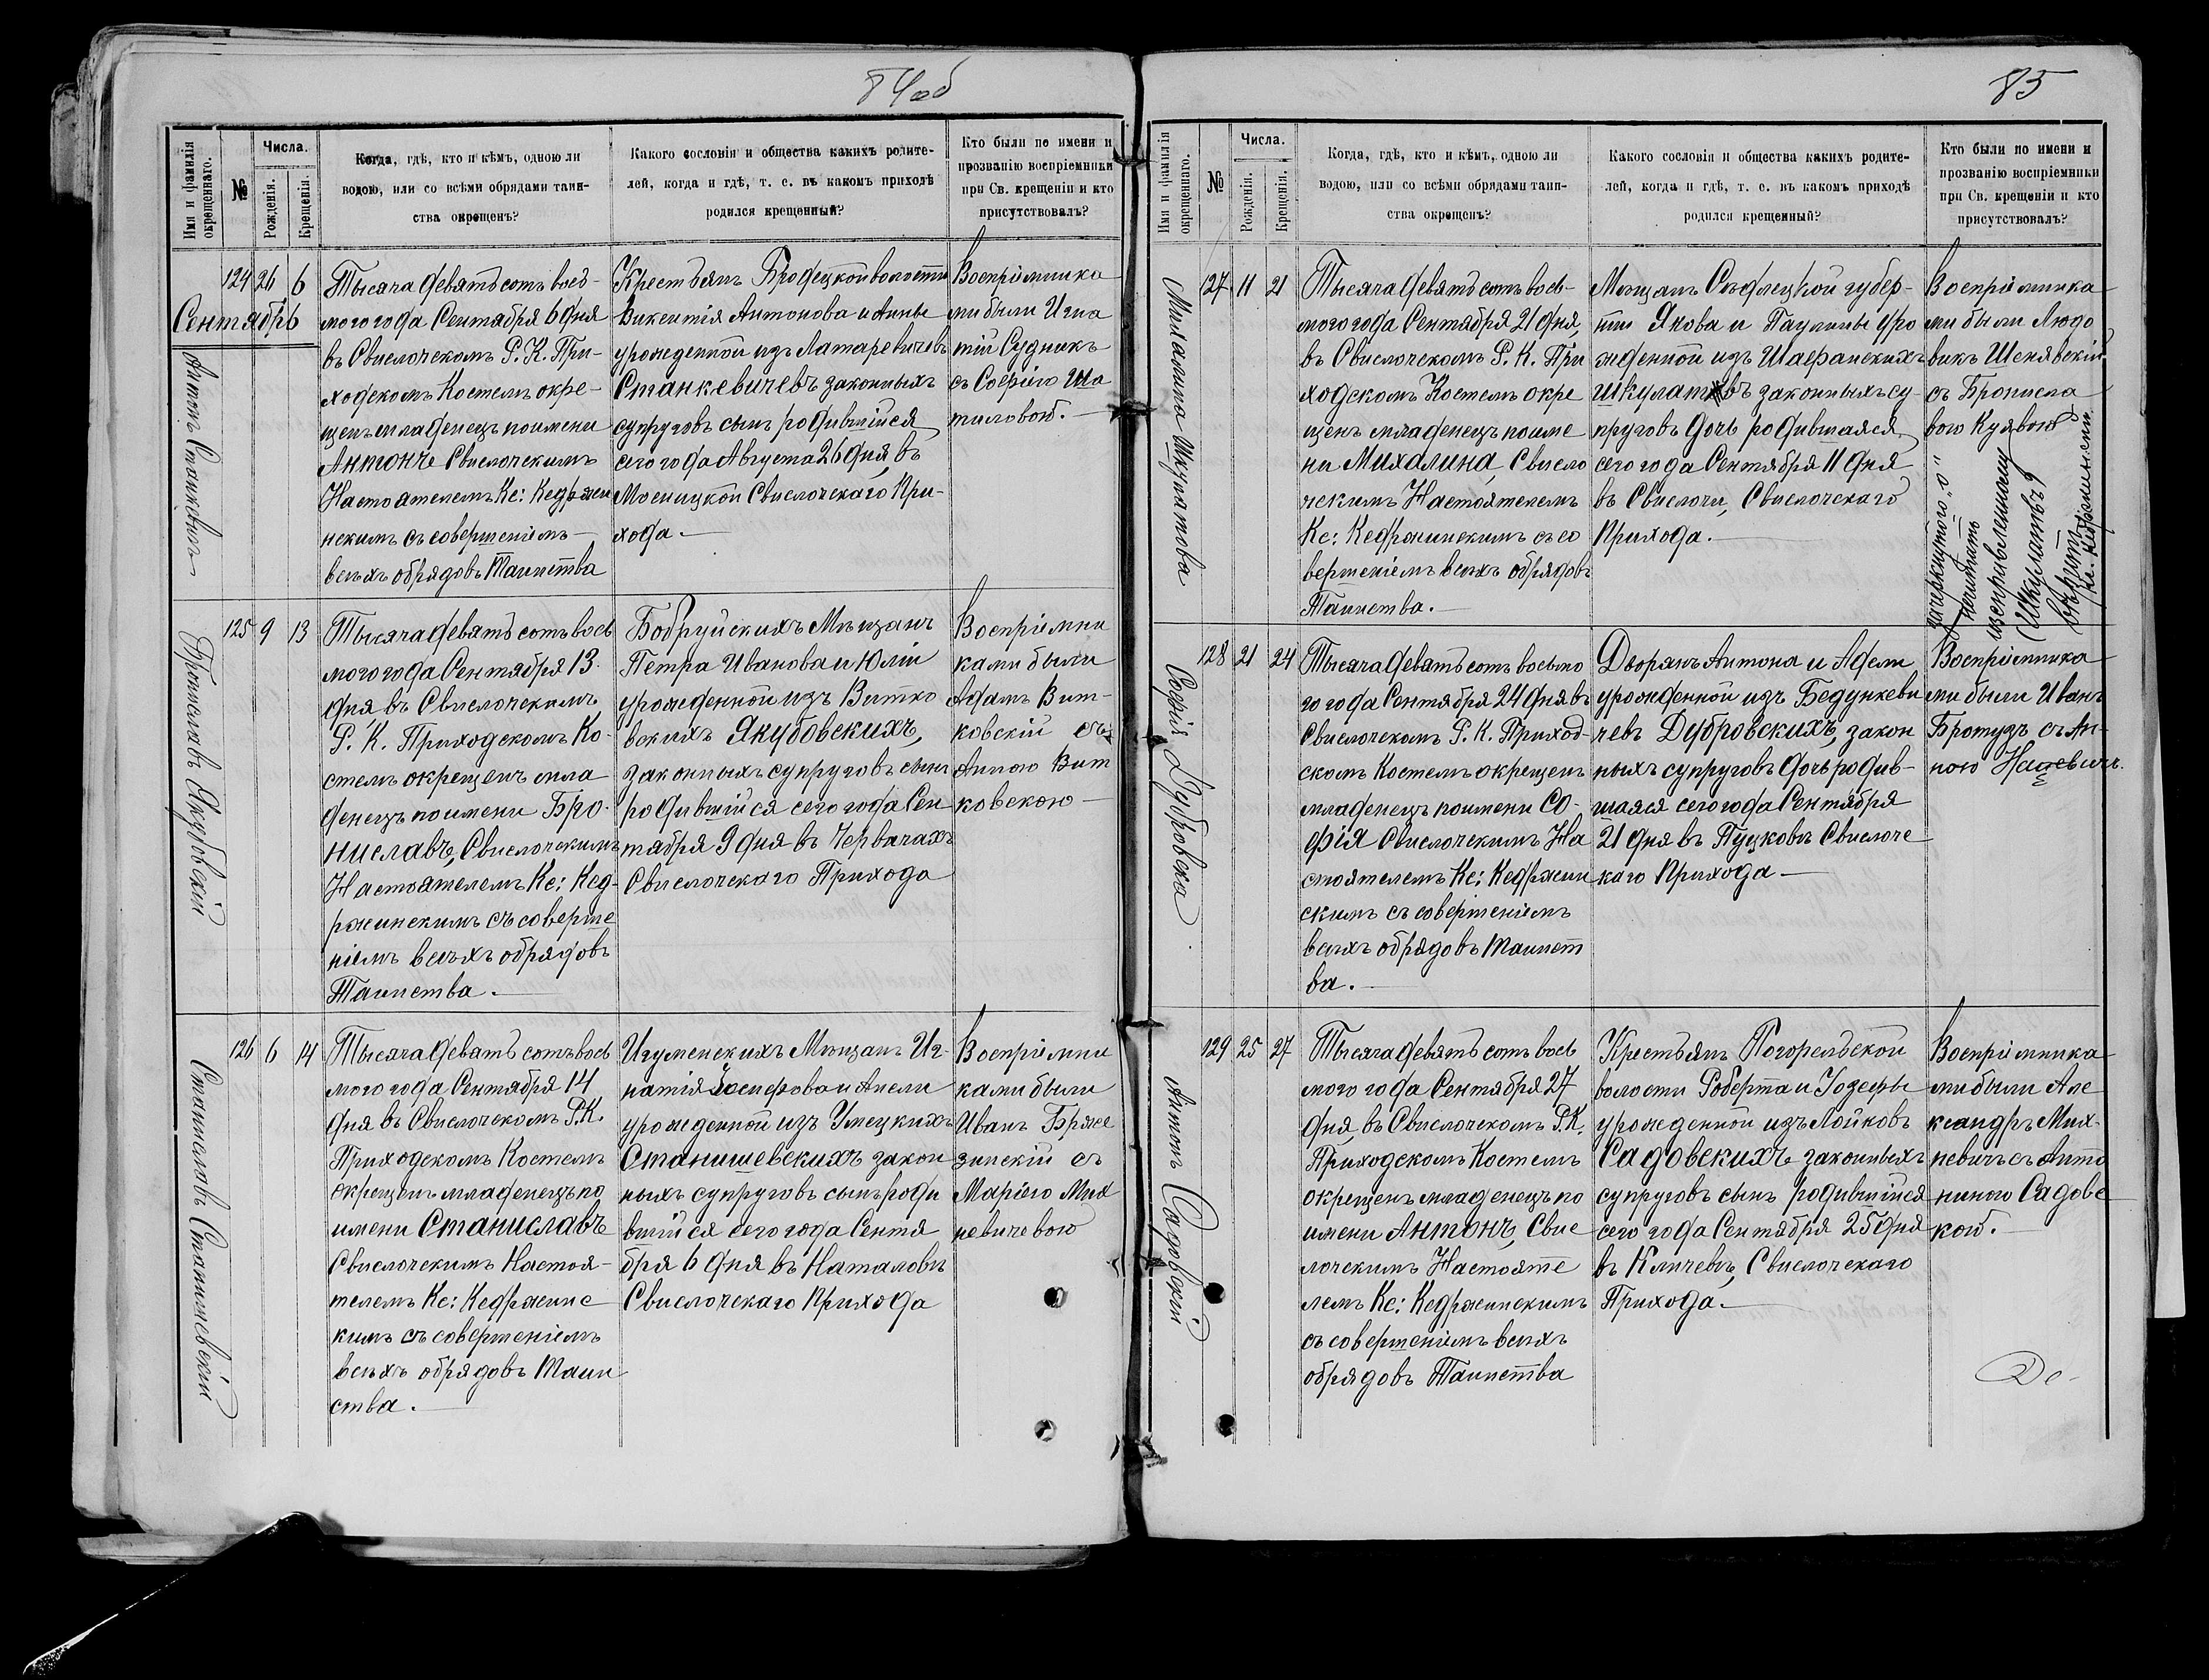 84об
Имя и фамилія окрещеннаго.
№
Числа.
Рожденія.
Крещенія.
Когда, гдѣ, кто и кѣмъ, одною ли
водою, или со всѣми обрядами таин-
ства окрещенъ?
Какого сословія и общества какихъ родите-
лей, когда и гдѣ, т. е. въ какомъ приходѣ
родился крещенный?
Кто были по имени и
прозванію воспріемники
при Св. крещеніи и кто
присутствовалъ?
Сентябрь
Антонъ Станкевичъ
124 26 6
Тысяча девятьсотъ вось-
мого года Сентября 6 дня
въ Свислочскомъ Р. К. При-
ходскомъ Костелѣ окре-
щенъ младенецъ по имени
Антонъ Свислочскимъ
Настоятелемъ Кс: Кедржи
нскимъ съ совершеніемъ
всѣхъ обрядовъ Таинства
Крестьянъ Бродецкой волости
Викентія Антонова и Анны
урожденной изъ Латаревичевъ
Станкевичевъ законныхъ
супруговъ сынъ родившійся
сего года Августа 26 дня, въ
Мосницкой Свислочскаго При-
хода.
Воспріемника
ми были Игна
тій Судникъ
съ Софіею Ша
тиловой.
Брониславъ Якубовскій
125 9 13
Тысяча девятьсотъ вось
мого года Сентября 13
дня въ Свислочскимъ
Р. К. Приходскомъ Ко-
стелѣ окрещенъ мла
денецъ по имени Бро-
ниславъ, Свислочскимъ
Настоятелемъ Кс: Кед-
ржинскимъ съ соверше
ніемъ всѣхъ обрядовъ
Таинства.
Бобруйскихъ Мѣщанъ
Петра Иванова и Юліи
урожденной изъ Витко
вскихъ Якубовскихъ,
законныхъ супруговъ сынъ
родившійся сего года Сен
тября 9 дня въ Червачахъ
Свислочскаго Прихода
Воспріемни
ками были
Адамъ Вит-
ковскій съ
Анною Вит
ковскою
Станиславъ Станишевскій
126 6 14
Тысяча девятьсотъ вось
мого года Сентября 14
дня въ Свислочскомъ Р.К.
Приходскомъ Костелѣ
окрещенъ младенецъ по
имени Станиславъ
Свислочскимъ Настоя-
телемъ Кс: Кедржинс
кимъ съ совершеніемъ
всѣхъ обрядовъ Таин
ства.
Игуменскихъ Мѣщанъ Иг-
натія Іосифова и Анели
урожденной изъ Умецкихъ
Станишевскихъ закон
ныхъ супруговъ сынъ роди
вшійся сего года Сентя
бря 6 дня въ Наталовѣ
Свислочскаго Прихода
Воспріемни
ками были
Иванъ Бряже
зинскій съ
Маріею Мих
невичевою
85
Имя и фамилія окрещеннаго.
№
Числа.
Рожденія.
Крещенія.
Когда, гдѣ, кто и кѣмъ, одною ли
водою, или со всѣми обрядами таин-
ства окрещенъ?
Какого сословія и общества какихъ родите-
лей, когда и гдѣ, т. е. въ какомъ приходѣ
родился крещенный?
Кто были по имени и
прозванію воспріемники
при Св. крещеніи и кто
присутствовалъ?
Михалина Шкулатова
127 11 21
Тысяча девятьсотъ вось-
мого года Сентября 21 дня,
въ Свислочскомъ Р. К. При
ходскомъ Костелѣ окре
щенъ младенецъ по име
ни Михалина, Свисло
чскимъ Настоятелемъ
Кс: Кедржинскимъ съ со
вершеніемъ всѣхъ обрядовъ
Таинства.
Мѣщанъ Сѣдлецкой губер-
ніи Якова и Паулины уро
жденной изъ Шафранскихъ
Шкулатовъ законныхъ су-
пруговъ дочь родившаяся
сего года Сентября 11 дня
въ Свислочи, Свислочскаго
Прихода.
Воспріемника
ми были Людо
викъ Шенявскій
съ Брониcла
вою Куявою
зачеркнутого „о"
читать
изсправленному
(Шкулатъ)
Кс. Кедржинскій
Софія Дубровска
128 21 24
Тысяча девятьсотъ восьмо
го года Сентября 24 дня въ
Свислочскомъ Р. К. Приход-
скомъ Костелѣ окрещенъ
младенецъ по имени Со-
фія Свислочскимъ На
стоятелемъ Кс: Кедржин
скимъ съ совершеніемъ
всѣхъ обрядовъ Таинст
ва.
Дворянъ Антона и Адели
урожденной изъ Бедункеви
чевъ Дубровскихъ, закон
ныхъ супруговъ дочь родив-
шаяся сего года Сентября
21 дня въ Пуцковѣ Свислочс
каго Прихода
Воспріемника
ми были Иванъ
Бротузъ съ Ан-
ною
Антонъ Садовскій
129 25 27
Тысяча девятьсотъ вось
мого года Сентября 27
дня, въ Свислочскомъ Р.К.
Приходскомъ Костелѣ
окрещенъ младенецъ по
имени Антонъ, Свис
лочскимъ Настояте
лемъ Кс: Кедржинскимъ
съ совершеніемъ всѣхъ
обрядовъ Таинства
Крестьянъ Погорельской
волости Роберта и Іозефы
урожденной изъ Лойковъ
Садовскихъ законныхъ
супруговъ сынъ родившійся
сего года Сентября 25 дня
въ Кличевѣ, Свислочскаго
Прихода.
Воспріемника
ми были Але
ксандръ Мих-
невичъ съ Анто
ниною Садовс
кой.